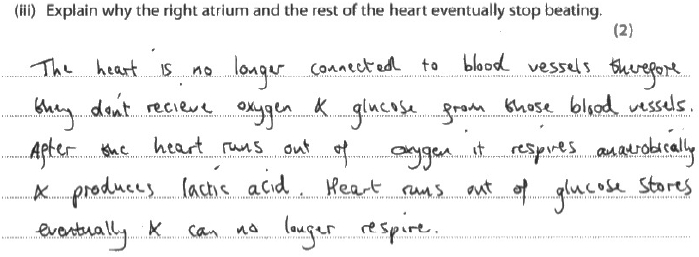 (iii) Explain why the right atrium and the rest of the heart eventually stop beating.
(2)
The heart is no longer connected to blood vessels therefore
they don't recieve oxygen & glucose from those blood vessels.
After the heart runs out of oxygen it respires anaerobically
& produces lactic acid. Heart runs out of glucose stores
eventually & can no longer respire.